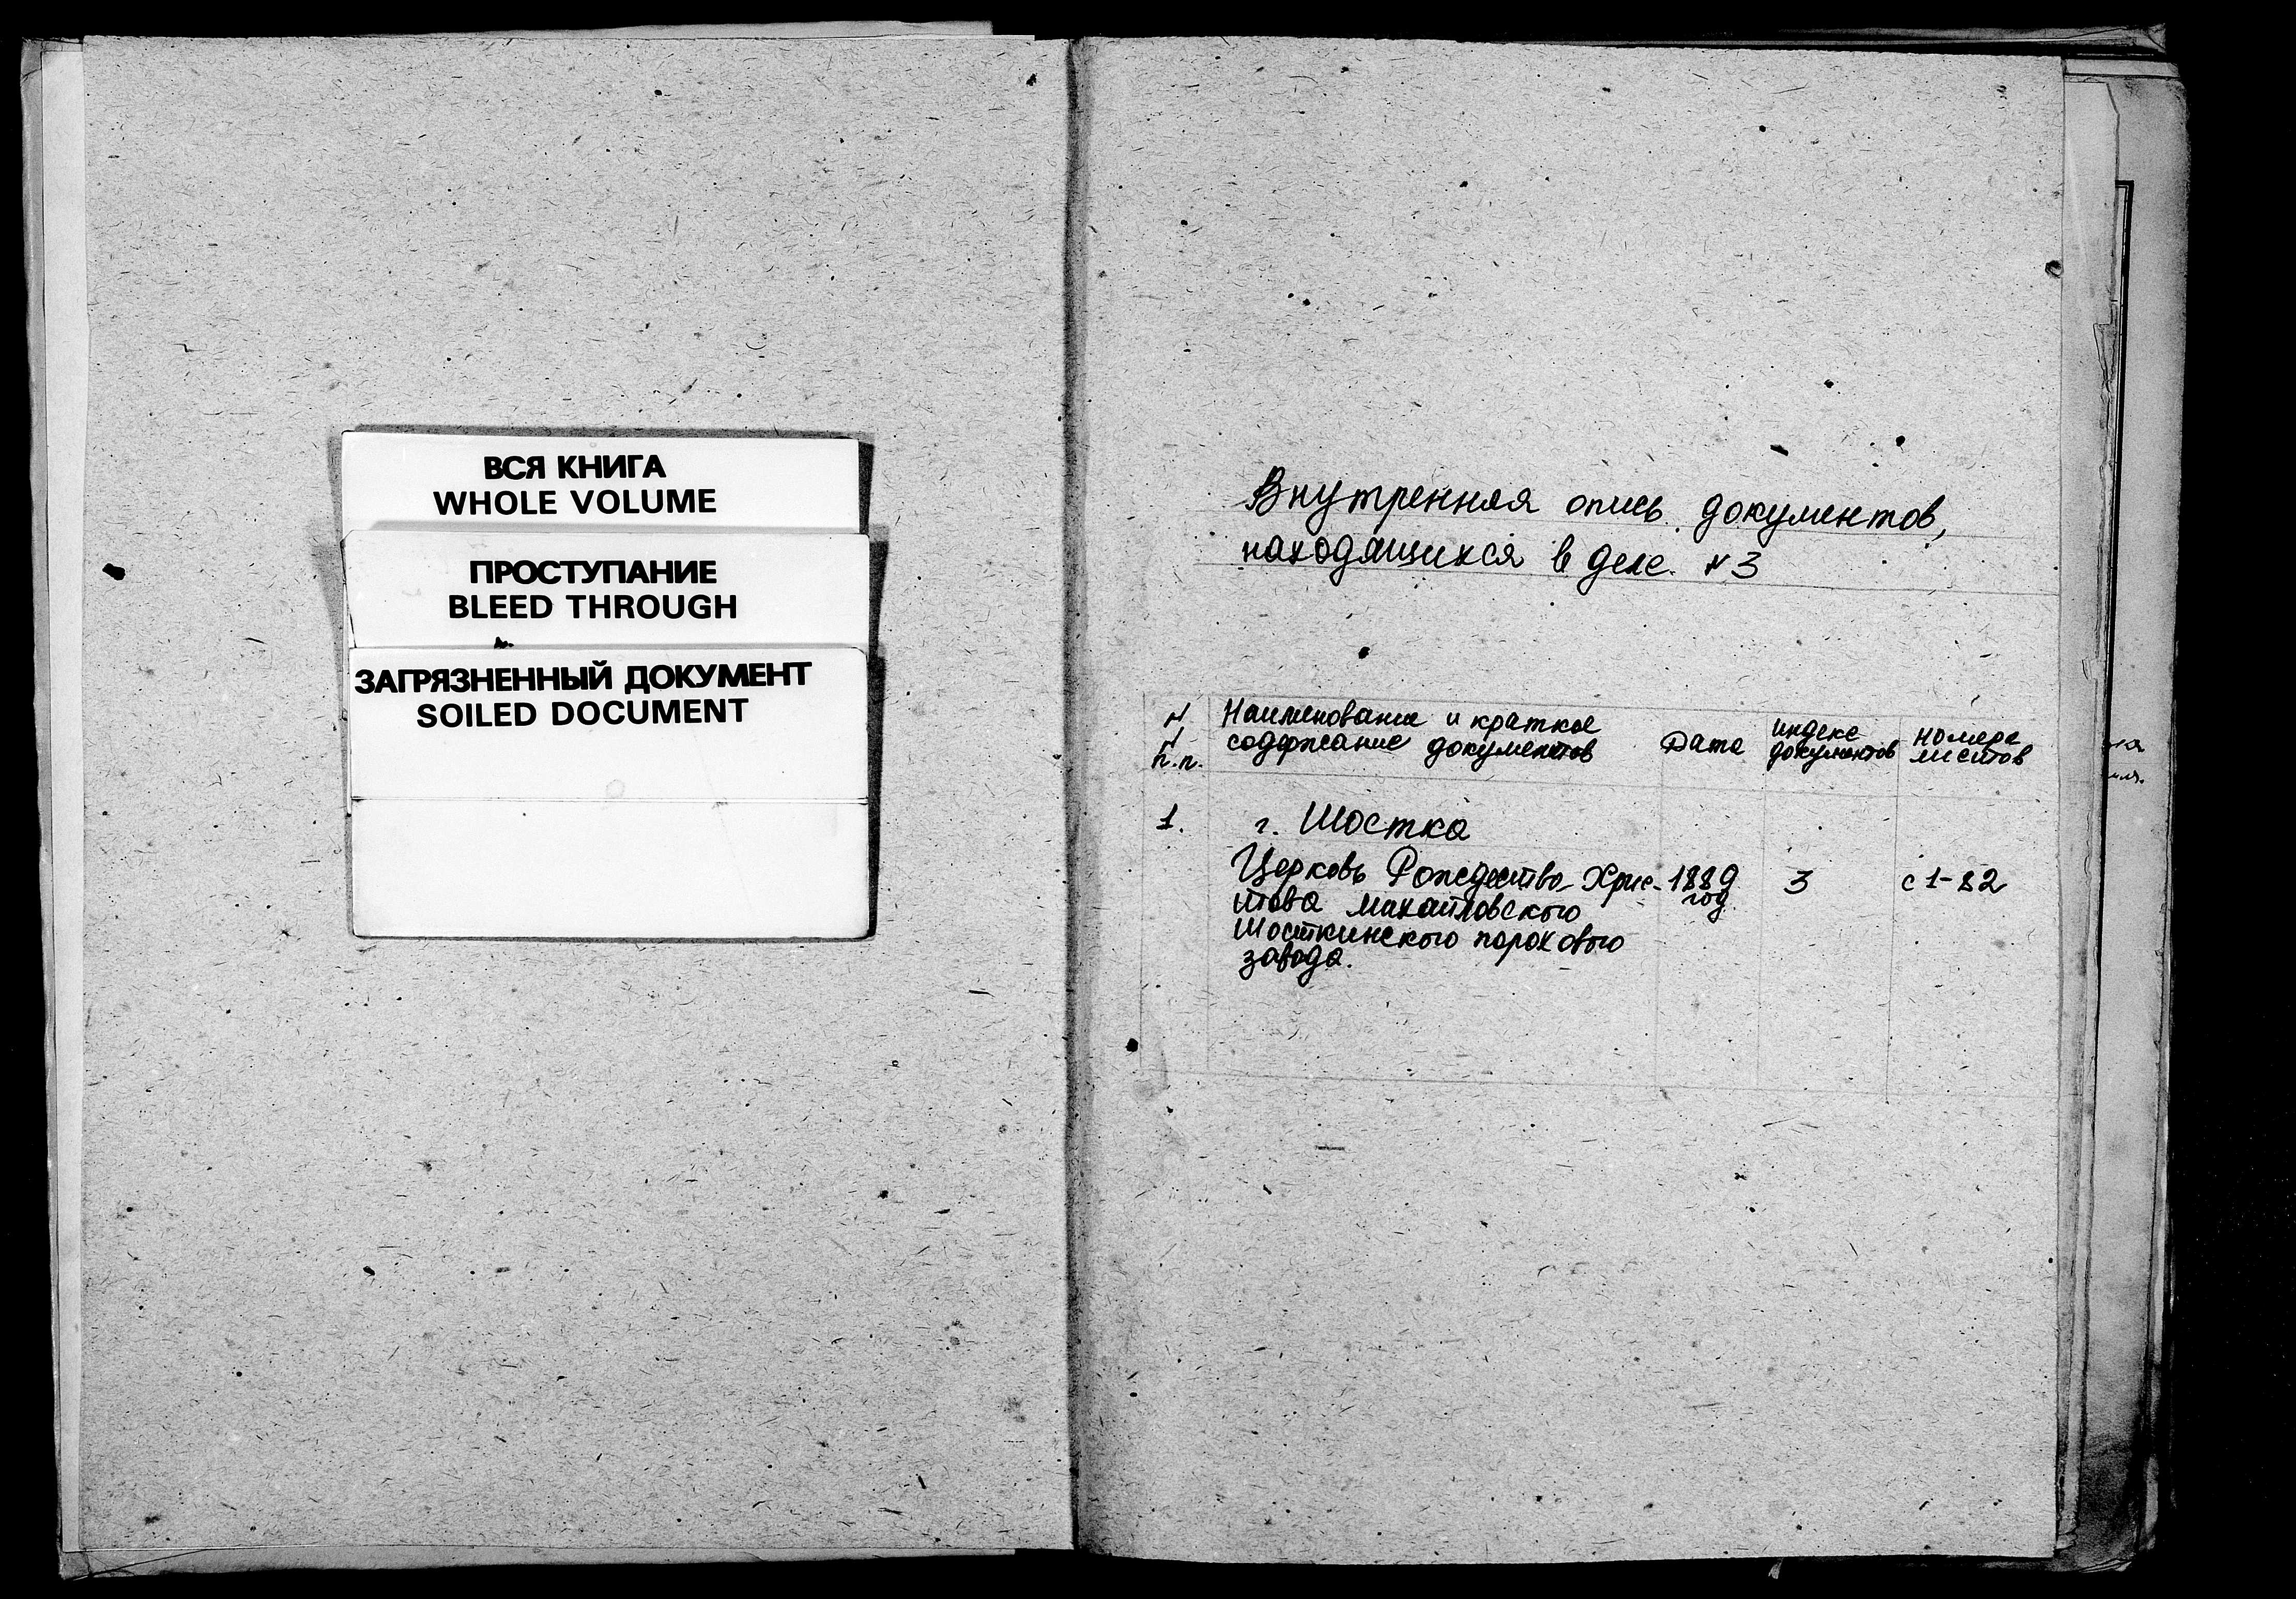 ВСЯ КНИГА
WHOLE VOLUME
ПРОСТУПАНИЕ
BLEED THROUGH
ЗАГРЯЗНЕННЫЙ ДОКУМЕНТ
SOILED DOCUMENT
Внутренняя опись документов,
находящихся в деле. N 3
N N п.п.
Наименование и краткое
содержание документов
Дата
индекс
документов
номера
листов
1.
г. Шостка
Церковь Рождество-Хрис- 1889 3 с 1-82
това Михайловского год
Шосткинского порохового
завода.